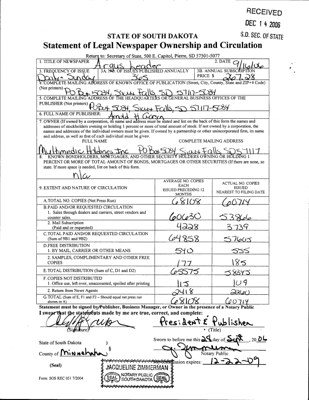 RECEIVED
DEC 14 2006
S.D. SEC. OF STATE
STATE OF SOUTH DAKOTA
Statement of Legal Newspaper Ownership and Circulation
Return to: Secretary of State, 500 E. Capitol, Pierre, SD 57501-5077
1. TITLE OF NEWSPAPER
Argus Leader
2. DATE
3. FREQUENCY OF ISSUE
Daily - Sunday
3A. NO. OF ISSUES PUBLISHED ANNUALLY
365
3B. ANNUAL SUBSCRIPTION
PRICE: $
4. COMPLETE MAILING ADDRESS OF KNOWN OFFICE OF PUBLICATION (Street, City, County, State and ZIP+4 Code)
(Not printers)
P.O. Box 5034, Sioux Falls, SD 57117-5034
5. COMPLETE MAILING ADDRESS OF THE HEADQUARTERS OR GENERAL BUSINESS OFFICES OF THE
PUBLISHER (Not printers)
P.O. Box 5034, Sioux Falls, SD 57117-5034
6. FULL NAME OF PUBLISHER
Arnold H Garson
7. OWNER (If owned by a corporation, its name and address must be stated and
FULL NAME
COMPLETE MAILING ADDRESS
Multimedia Holdings Inc. PO Box 5034, Sioux Falls, SD 57117
8. KNOWN BONDHOLDERS, MORTGAGEES, AND OTHER SECURITY HOLDERS OWNING OR HOLDING 1
PERCENT OR MORE OF TOTAL AMOUNT OF BONDS, MORTGAGES OR OTHER SECURITIES (If there are none, so
state. If more space is needed, list on back of this form.)
n/a
9. EXTENT AND NATURE OF CIRCULATION
AVERAGE NO. COPIES
EACH
ISSUED PRECEDING 12
MONTHS
ACTUAL NO. COPIES
ISSUED
NEAREST TO FILING DATE
A. TOTAL NO. COPIES (Net Press Run)
68108
60714
B. PAID AND/OR REQUESTED CIRCULATION
1. Sales through dealers and carriers, street vendors and
counter sales.
60630
53866
2. Mail Subscription
(Paid and or requested)
4228
3739
C. TOTAL PAID AND/OR REQUESTED CIRCULATION
(Sum of 9B1 and 9B2)
64858
57605
D. FREE DISTRIBUTION
1. BY MAIL, CARRIER OR OTHER MEANS
540
555
2. SAMPLES, COMPLIMENTARY AND OTHER FREE
COPIES
177
185
E. TOTAL DISTRIBUTION (Sum of C, D1 and D2)
65575
58345
F. COPIES NOT DISTRIBUTED
1. Office use, left over, unaccounted, spoiled after printing
115
109
2. Return from News Agents
2418
G. TOTAL (Sum of E, F1 and F2 - Should equal net press run
shown in A)
68108
60714
Statement must be signed by Publisher, Business Manager, or Owner in the presence of a Notary Public
I swear that the statements made by me are true, correct, and complete:
President & Publisher
(Signature)
(Title)
State of South Dakota )
Sworn to before me this
County of Minnehaha
Notary Public
(Seal)
12-22-09
JACQUELINE ZIMMERMAN
NOTARY PUBLIC
SOUTH DAKOTA
SEAL
SEAL